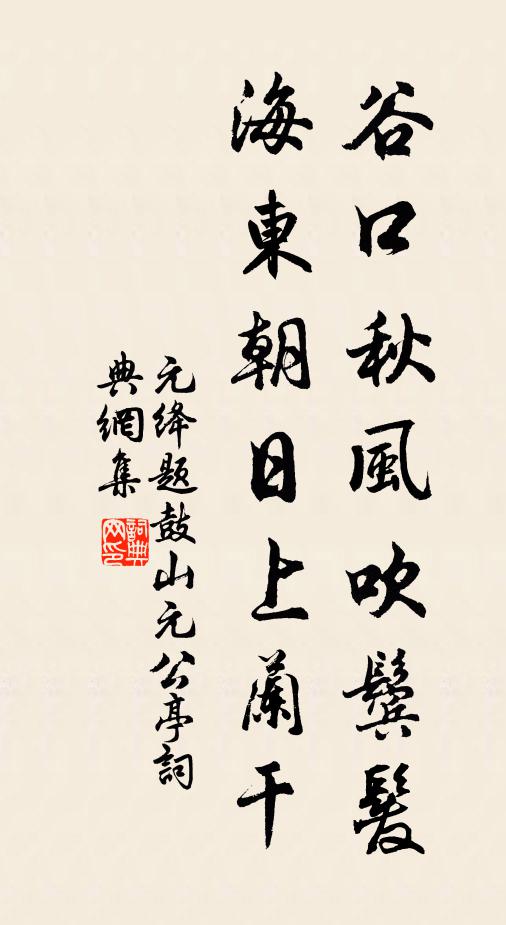 谷口秋風吹鬢髮
海東朝日上蘭干
元絳題鼓山元公亭詞
典網集
詞典網印